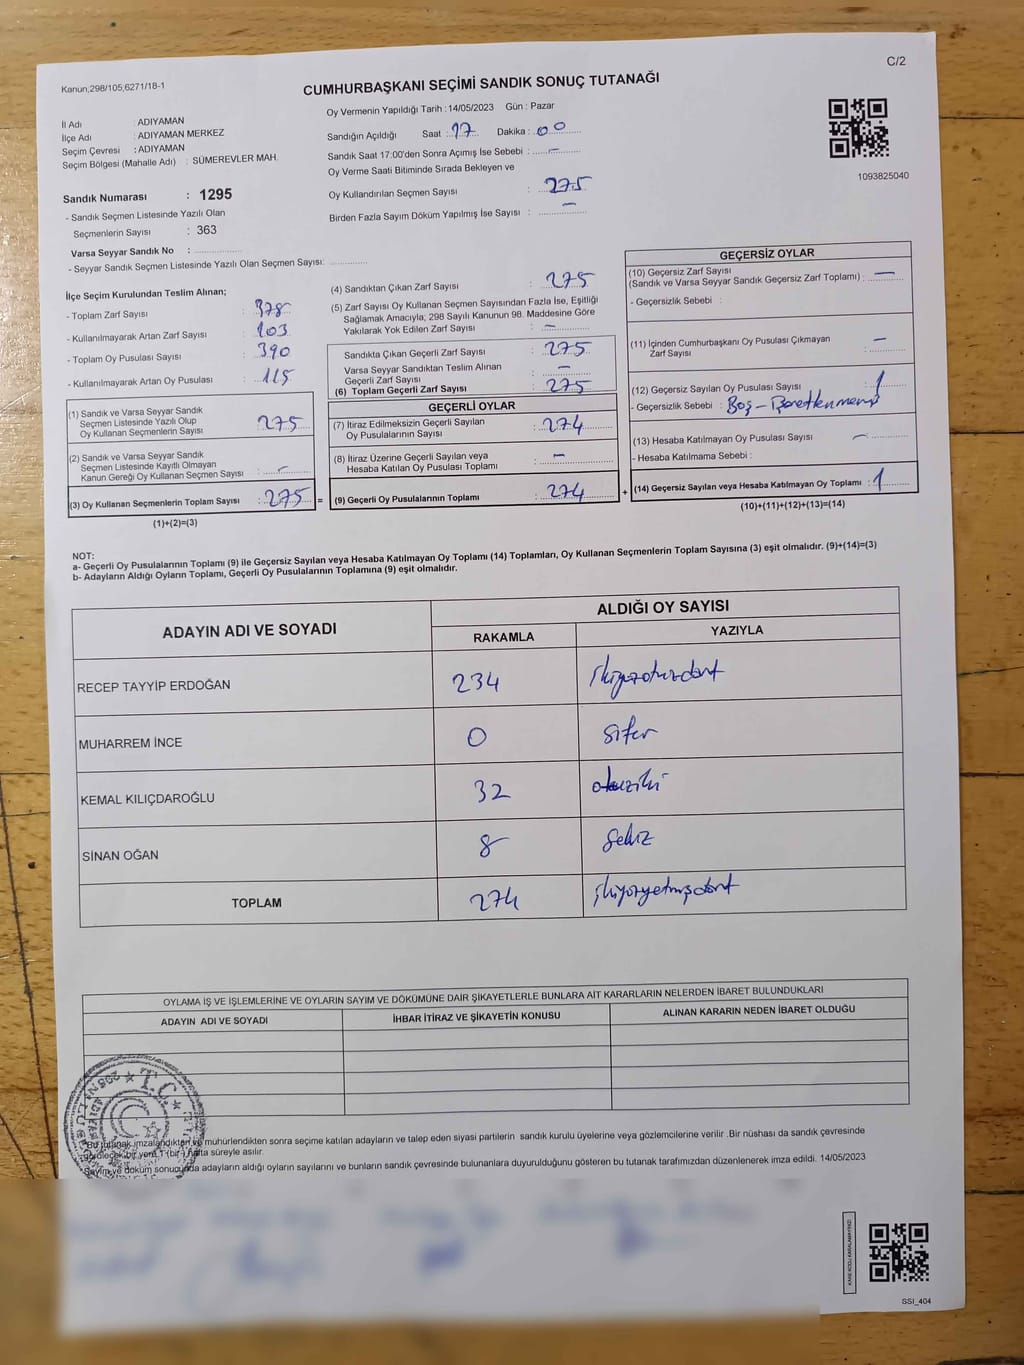 Kanun,298/105,6271/18-1
C/2
CUMHURBAŞKANI SEÇİMİ SANDIK SONUÇ TUTANAĞI
İl Adı : ADIYAMAN
İlçe Adı : ADIYAMAN MERKEZ
Seçim Çevresi : ADIYAMAN
Seçim Bölgesi (Mahalle Adı) : SÜMEREVLER MAH.
Sandık Numarası : 1295
- Sandık Seçmen Listesinde Yazılı Olan
Seçmenlerin Sayısı : 363
Varsa Seyyar Sandık No :
- Seyyar Sandık Seçmen Listesinde Yazılı Olan Seçmen Sayısı:
Oy Vermenin Yapıldığı Tarih : 14/05/2023 Gün : Pazar
Sandığın Açıldığı Saat : 17 Dakika : 00
Sandık Saat 17:00'den Sonra Açımış İse Sebebi : –
Oy Verme Saati Bitiminde Sırada Bekleyen ve
Oy Kullandırılan Seçmen Sayısı : 275
Birden Fazla Sayım Döküm Yapılmış İse Sayısı : –
1093825040
İlçe Seçim Kurulundan Teslim Alınan;
- Toplam Zarf Sayısı : 378
- Kullanılmayarak Artan Zarf Sayısı : 103
- Toplam Oy Pusulası Sayısı : 390
- Kullanılmayarak Artan Oy Pusulası : 115
(1) Sandık ve Varsa Seyyar Sandık
Seçmen Listesinde Yazılı Olup
Oy Kullanan Seçmenlerin Sayısı : 275
(2) Sandık ve Varsa Seyyar Sandık
Seçmen Listesinde Kayıtlı Olmayan
Kanun Gereği Oy Kullanan Seçmen Sayısı : –
(3) Oy Kullanan Seçmenlerin Toplam Sayısı : 275 =
(1)+(2)=(3)
(4) Sandıktan Çıkan Zarf Sayısı : 275
(5) Zarf Sayısı Oy Kullanan Seçmen Sayısından Fazla İse, Eşitliği
Sağlamak Amacıyla; 298 Sayılı Kanunun 98. Maddesine Göre
Yakılarak Yok Edilen Zarf Sayısı : –
Sandıkta Çıkan Geçerli Zarf Sayısı : 275
Varsa Seyyar Sandıktan Teslim Alınan
Geçerli Zarf Sayısı : –
(6) Toplam Geçerli Zarf Sayısı : 275
GEÇERLİ OYLAR
(7) İtiraz Edilmeksizin Geçerli Sayılan
Oy Pusulalarının Sayısı : 274
(8) İtiraz Üzerine Geçerli Sayılan veya
Hesaba Katılan Oy Pusulası Toplamı : –
(9) Geçerli Oy Pusulalarının Toplamı : 274 +
GEÇERSİZ OYLAR
(10) Geçersiz Zarf Sayısı
(Sandık ve Varsa Seyyar Sandık Geçersiz Zarf Toplamı) : –
- Geçersizlik Sebebi :
(11) İçinden Cumhurbaşkanı Oy Pusulası Çıkmayan
Zarf Sayısı : –
(12) Geçersiz Sayılan Oy Pusulası Sayısı : 1
- Geçersizlik Sebebi : Boş – İşaretlenmemiş
(13) Hesaba Katılmayan Oy Pusulası Sayısı : –
- Hesaba Katılmama Sebebi :
(14) Geçersiz Sayılan veya Hesaba Katılmayan Oy Toplamı : 1
(10)+(11)+(12)+(13)=(14)
NOT:
a- Geçerli Oy Pusulalarının Toplamı (9) ile Geçersiz Sayılan veya Hesaba Katılmayan Oy Toplamı (14) Toplamları, Oy Kullanan Seçmenlerin Toplam Sayısına (3) eşit olmalıdır. (9)+(14)=(3)
b- Adayların Aldığı Oyların Toplamı, Geçerli Oy Pusulalarının Toplamına (9) eşit olmalıdır.
ADAYIN ADI VE SOYADI
ALDIĞI OY SAYISI
RAKAMLA YAZIYLA
RECEP TAYYİP ERDOĞAN 234 ikiyüzotuzdört
MUHARREM İNCE 0 sıfır
KEMAL KILIÇDAROĞLU 32 otuziki
SİNAN OĞAN 8 sekiz
TOPLAM 274 ikiyüzyetmişdört
OYLAMA İŞ VE İŞLEMLERİNE VE OYLARIN SAYIM VE DÖKÜMÜNE DAİR ŞİKAYETLERLE BUNLARA AİT KARARLARIN NELERDEN İBARET BULUNDUKLARI
ADAYIN ADI VE SOYADI İHBAR İTİRAZ VE ŞİKAYETİN KONUSU ALINAN KARARIN NEDEN İBARET OLDUĞU
T.C.
Bu tutanak imzalandıktan ve mühürlendikten sonra seçime katılan adayların ve talep eden siyasi partilerin sandık kurulu üyelerine veya gözlemcilerine verilir .Bir nüshası da sandık çevresinde
görülecek bir yere 1 (bir) hafta süreyle asılır.
Sayım ve döküm sonucunda adayların aldığı oyların sayılarını ve bunların sandık çevresinde bulunanlara duyurulduğunu gösteren bu tutanak tarafımızdan düzenlenerek imza edildi. 14/05/2023
KARE KODU KARALAMAYINIZ!
SSI_404